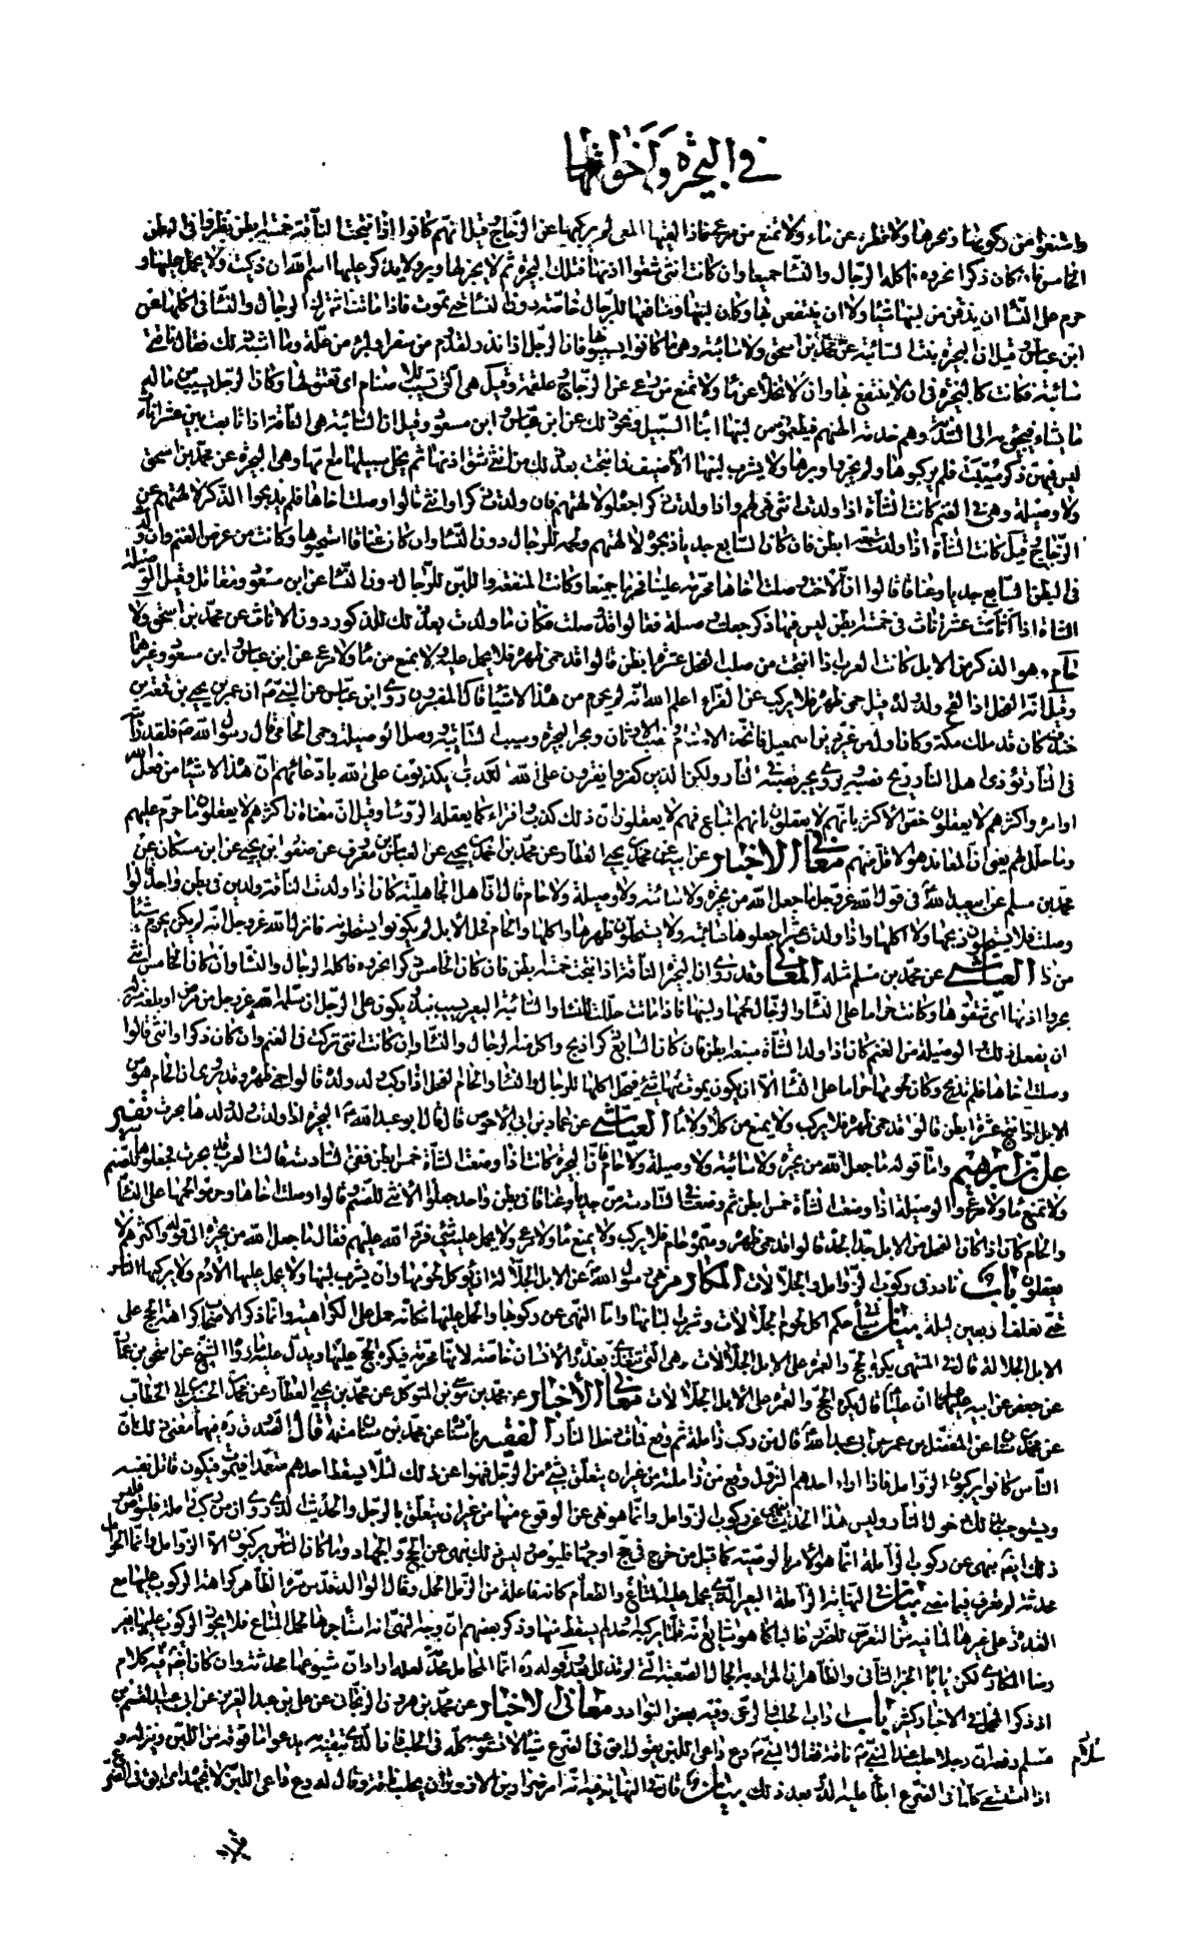 في البحيرة وأخواتها
وامتنعوا من ركوبها ونحرها ولا تطرد عن ماء ولا تمنع من مرعى فاذا لقيها المعي لم يركبها عن الزجاج وقيل انهم كانوا اذا نتجت الناقة خمسة ابطن نظروا في البطن
الخامس فان كان ذكرا نحروه فاكله الرجال والنساء جميعا وان كانت انثى شقوا اذنها فتلك البحيرة ثم لا يجز لها وبر ولا يذكر عليها اسم الله ان ذكيت ولا يحمل عليها و
حرم على النساء ان يذقن من لبنها شيئا ولا ان ينتفعن بها وكان لبنها ومنافعها للرجال خاصة دون النساء حتى تموت فاذا ماتت اشترك الرجال والنساء في اكلها عن
ابن عباس وقيل ان البحيرة بنت السائبة عن محمد بن اسحق ولا سائبة وهي ما كانوا يسيبونها فان الرجل اذا نذر لقدوم من سفر او لبرء من علة وما اشبه ذلك فقال ناقتي
سائبة فكانت كالبحيرة في ان لا ينتفع بها وان لا تخلأ عن ماء ولا تمنع من مرعى عن الزجاج وعلقمة وقيل هي التي تسيب للاصنام اي تعتق لها وكان الرجل يسيب من ماله
ما يشاء فيجيء به الى السدنة وهم خدمة الهتهم فيطعمون من لبنها ابناء السبيل ونحو ذلك عن ابن عباس وابن مسعود وقيل ان السائبة هي الناقة اذا تابعت بين عشر اناث
ليس فيهن ذكر سيبت فلم يركبوها ولم يجزوا وبرها ولا يشرب لبنها الا ضيف فما نتجت بعد ذلك من انثى شق اذنها ثم يخلى سبيلها مع امها وهي البحيرة عن محمد بن اسحق
ولا وصيلة وهي في الغنم كانت الشاة اذا ولدت انثى فهي لهم واذا ولدت ذكرا جعلوه لالهتهم فان ولدت ذكرا وانثى قالوا وصلت اخاها فلم يذبحوا الذكر لالهتهم عن
الزجاج وقيل كانت الشاة اذا ولدت سبعة ابطن فان كان السابع جديا ذبحوه لالهتهم ولحمه للرجال دون النساء وان كان عناقا استحيوها وكانت من عرض الغنم وان ولدت
في البطن السابع جديا وعناقا قالوا ان الاخت وصلت اخاها فحرمته علينا فحرما جميعا وكانت المنفعة واللبن للرجال دون النساء عن ابن مسعود ومقاتل وقيل الوصيلة
الشاة اذا اتأمت عشر اناث في خمسة ابطن ليس فيها ذكر جعلت وصيلة فقالوا قد وصلت فكان ما ولدت بعد ذلك للذكور دون الاناث عن محمد بن اسحق ولا
حام وهو الذكر من الابل كانت العرب اذا انتجت من صلب الفحل عشرة ابطن قالوا قد حمى ظهره فلا يحمل عليه ولا يمنع من ماء ولا مرعى عن ابن عباس وابن مسعود وغيرهما
وقيل انه الفحل اذا لقح ولد ولده قيل حمى ظهره فلا يركب عن الفراء اعلم الله انه لم يحرم من هذه الاشياء قال المفسرون روى ابن عباس عن النبي ص ان عمرو بن لحي بن قمعة بن
خندف كان قد ملك مكة وكان اول من غير دين اسمعيل فاتخذ الاصنام ونصب الاوثان وبحر البحيرة وسيب السائبة ووصل الوصيلة وحمى الحامي قال رسول الله ص فلقد رايته
في النار تؤذي اهل النار ريح قصبه ويروى يجر قصبه في النار ولكن الذين كفروا يفترون على الله الكذب اي يكذبون على الله بادعائهم ان هذه الاشياء من فعل الله
او امره واكثرهم لا يعقلون خص الاكثر بانهم لا يعقلون لانهم اتباع فهم لا يعقلون ان ذلك كذب وافتراء كما يعقله الرؤساء وقيل ان معناه ان اكثرهم لا يعقلون ما حرم عليهم
وما حلل لهم يعني ان المعاند هو الاقل منهم معاني الاخبار عن ابيه عن محمد بن يحيى العطار عن محمد بن احمد بن يحيى عن العباس بن معروف عن صفوان بن يحيى عن ابن مسكان عن
محمد بن مسلم عن ابي عبد الله في قول الله عز وجل ما جعل الله من بحيرة ولا سائبة ولا وصيلة ولا حام قال ان اهل الجاهلية كانوا اذا ولدت الناقة ولدين في بطن واحد قالوا
وصلت فلا يستحلون ذبحها ولا اكلها واذا ولدت عشرا جعلوها سائبة ولا يستحلون ظهرها ولا اكلها والحام فحل الابل لم يكونوا يستحلونه فانزل الله عز وجل انه لم يكن يحرم شيئا
من ذا العياشي عن محمد بن مسلم مثله المعاني وقد روي ان البحيرة الناقة اذا انتجت خمسة ابطن فان كان الخامس ذكرا نحروه فاكله الرجال والنساء وان كان الخامس انثى
بحروا اذنها اي شقوها وكانت حراما على النساء والرجال لحمها ولبنها فاذا ماتت حلت للنساء والسائبة البعير يسيب بنذر يكون على الرجل ان سلمه الله عز وجل من مرض او بلغه منزله
ان يفعل ذلك والوصيلة من الغنم كانوا اذا ولدت الشاة سبعة ابطن فان كان السابع ذكرا ذبح واكل منه الرجال والنساء وان كانت انثى تركت في الغنم وان كان ذكرا وانثى قالوا
وصلت اخاها فلم تذبح وكان لحومها حراما على النساء الا ان يكون يموت منها شيء فيحل اكلها للرجال والنساء والحام الفحل اذا ركب ولد ولده قالوا حمى ظهره وقد يروى ان الحام هو من
الابل اذا نتج عشرة ابطن قالوا قد حمى ظهره فلا يركب ولا يمنع من كلأ ولا ماء العياشي عن عمار بن ابي الاحوص قال قال ابو عبد الله البحيرة اذا ولدت ولد ولدها بحرت تفسير
علي بن ابراهيم واما قوله ما جعل الله من بحيرة ولا سائبة ولا وصيلة ولا حام فان البحيرة كانت اذا وضعت الشاة خمس ابطن ففي السادسة قالت العرب قد بحرت فجعلوها للصنم
ولا تمنع ماء ولا مرعى والوصيلة اذا وضعت الشاة خمس ابطن ثم وضعت في السادسة جديا وعناقا في بطن واحد جعلوا الانثى للصنم وقالوا وصلت اخاها وحرموا لحمها على النساء
والحام كان اذا كان الفحل من الابل جد الجد قالوا قد حمى ظهره وسموه حام فلا يركب ولا يمنع ماء ولا مرعى ولا يحمل عليه شيء فرد الله عليهم فقال ما جعل الله من بحيرة الى قوله واكثرهم لا
يعقلون باب نادر في ركوب الزوامل والجلالات المكارم نهى رسول الله عن الابل الجلالة ان يؤكل لحومها وان يشرب لبنها ولا يحمل عليها الادم ولا يركبها الناس
حتى تعلف اربعين ليلة بيان سيأتي حكم اكل لحوم الجلالات وشرب البانها واما النهي عن ركوبها والحمل عليها فكانه حمل على الكراهية وانما ذكر الاصحاب كراهة الحج على
الابل الجلالة قال في المنتهى يكره الحج والعمرة على الابل الجلالات وهي التي تغتذي بعذرة الانسان خاصة لانها محرمة فيكره الحج عليها ويدل عليه ما رواه الشيخ عن اسحق بن عمار
عن جعفر عن ابيه عليهما ان عليا كان يكره الحج والعمرة على الابل الجلالات معاني الاخبار عن محمد بن موسى بن المتوكل عن محمد بن يحيى العطار عن محمد بن الحسين بن ابي الخطاب
عن محمد بن سنان عن المفضل بن عمر عن ابي عبد الله قال من ركب زاملة ثم وقع منها فمات دخل النار الفقيه باسناده عن محمد بن سنان مثله قال الصدوق ره فيهما معنى ذلك ان
الناس كانوا يركبون الزوامل فاذا اراد احدهم النزول وقع من زاملته من غير ان يتعلق بشيء من الرحل فنهوا عن ذلك لئلا يسقط احدهم متعمدا فيموت فيكون قاتل نفسه
ويستوجب بذلك دخول النار وليس هذا الحديث ينهى عن ركوب الزوامل وانما هو نهي عن الوقوع منها من غير ان يتعلق بالرحل والحديث الذي روي ان من ركب زاملة فليوص فليس
ذلك ايضا ينهى عن ركوب الزاملة انما هو الامر بالوصية كما قيل من خرج في حج او جهاد فليوص ليس ذلك ينهى عن الحج والجهاد وما كان الناس يركبون الا الزوامل وانما المحامل
محدثة لم تعرف فيما مضى بيان في النهاية الزاملة البعير الذي يحمل عليه المتاع والطعام كانه فاعلة من الزمل الحمل وقال الوالد قدس سره الظاهر كراهة الركوب عليها مع
القدرة على غيرها لما فيه من التعرض للضرر غالبا كما هو شايع انه قلما يركبها احد لم يسقط منها وذكر بعضهم ان وجه النهي انه استأجرها لحمل المتاع فلا يجوز الركوب عليها بغير
رضا المكاري لكن يأباه الجزء الثاني والظاهر ان المراد به الجمال الصعبة التي لم تذلل بعد قوله ره انما المحامل محدثة لعله اراد ان شيوعها محدثة وان كان فيه كلام
اذ ذكر المحمل في الاخبار كثير باب اداب الحلب والرعي وفيه بعض النوادر معاني الاخبار عن محمد بن هرون الزنجاني عن علي بن عبد العزيز عن ابي عبيد القاسم بن
سلام
رفعه ان رجلا حلب عند النبي ص ناقة فقال النبي ص دع داعي اللبن يقول ابق في الضرع شيئا لا تستوعبه كله في الحلب فان الذي تبقيه به يدعو ما فوقه من اللبن وينزله و
اذا استقصي كلما في الضرع ابطأ عليه الدر بعد ذلك بيان قال في النهاية فيه انه امر ضرار بن الازور ان يحلب ناقة وقال له دع داعي اللبن لا تجهده اي ابق في الضرع